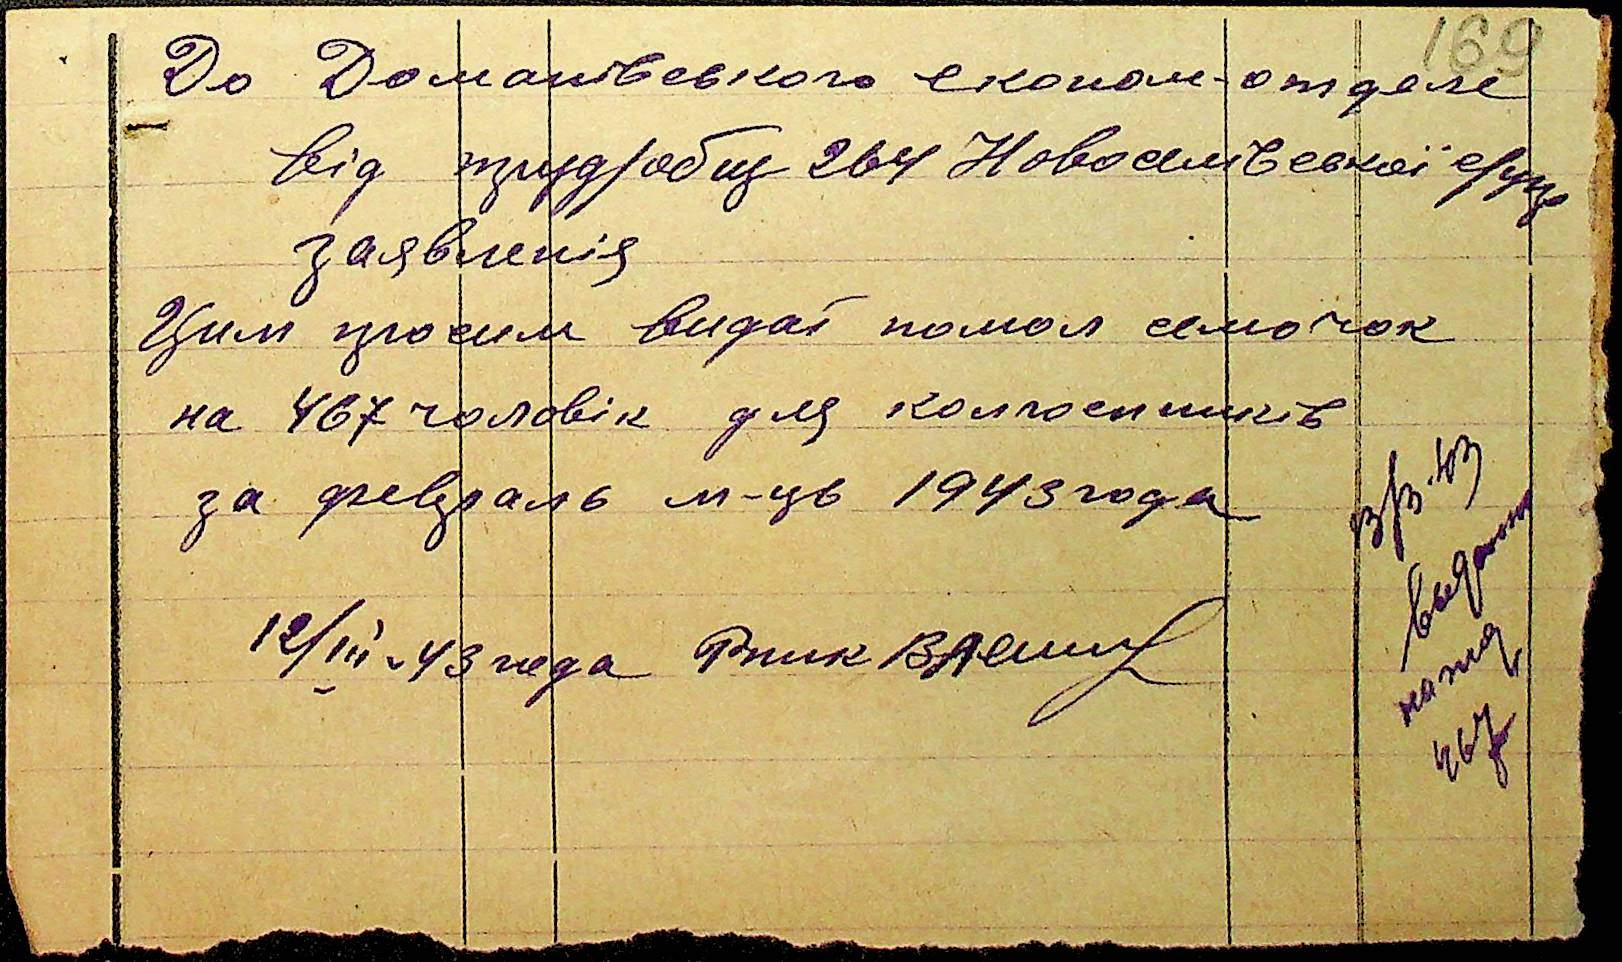 169
До Доманівського економ-отделе
від трудробщ 264 Новоселівської
заявленія
Цим просим видаї помол семочок
на 467 чоловік для колгоспників
за февраль м-ць 1943 года
12/III-43 года ВА
13/3.43
на
467